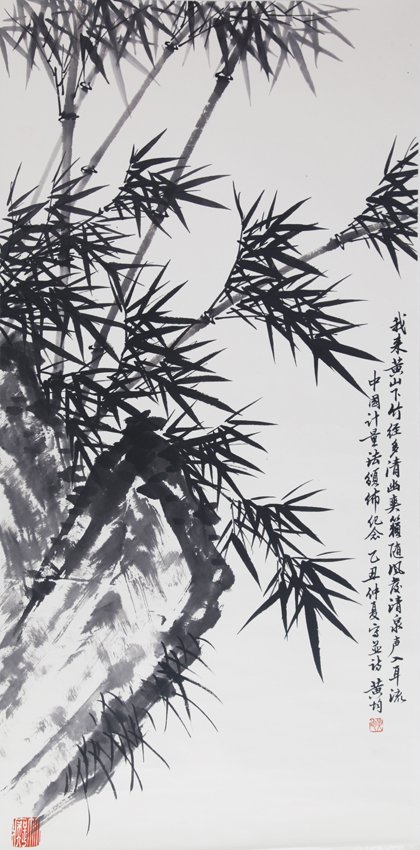 我来黄山下竹径多清幽爽籁随风发清泉声入耳流
中国计量法颁布纪念 乙丑仲夏写并诗 黄均